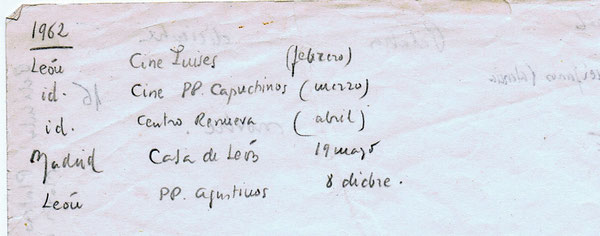 1962
León Cine Luises (febrero)
id. Cine PP. Capuchinos (marzo)
id. Centro Renueva (abril)
Madrid Casa de León 19 mayo
León PP. Agustinos 8 dicbre.